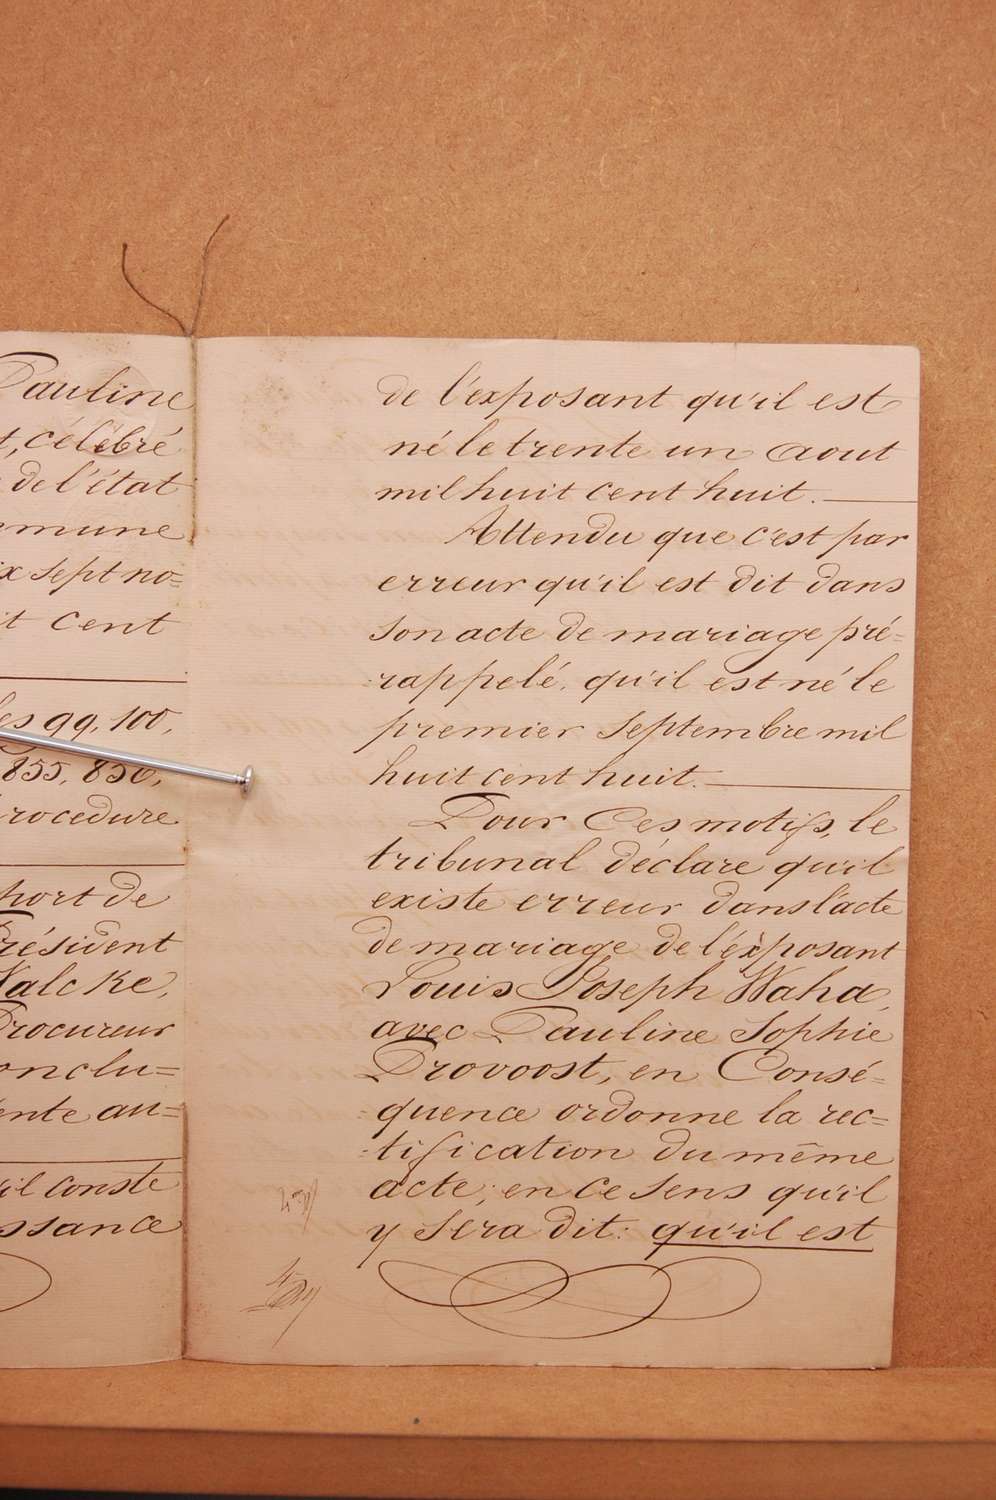 Pauline
célébré
de l'état
mmune
ix sept no=
it cent
les 99, 100,
855, 856,
rocedure
port de
résident
Valcke,
Procureur
onclu=
ente au=
'il conste
ssance
de l'exposant qu'il est
né le trente un Aout
mil huit cent huit.
Attendu que c'est par
erreur qu'il est dit dans
son acte de mariage pré=
rappelé, qu'il est né le
premier Septembre mil
huit cent huit.
Pour Ces motifs, le
tribunal déclare qu'il
existe erreur dans l'acte
de mariage de l'éxposant
Louis Joseph Waha,
avec Pauline Sophie
Provoost, en Consé=
quence ordonne la rec=
=tification du même
acte; en ce sens qu'il
y sera dit: qu'il est